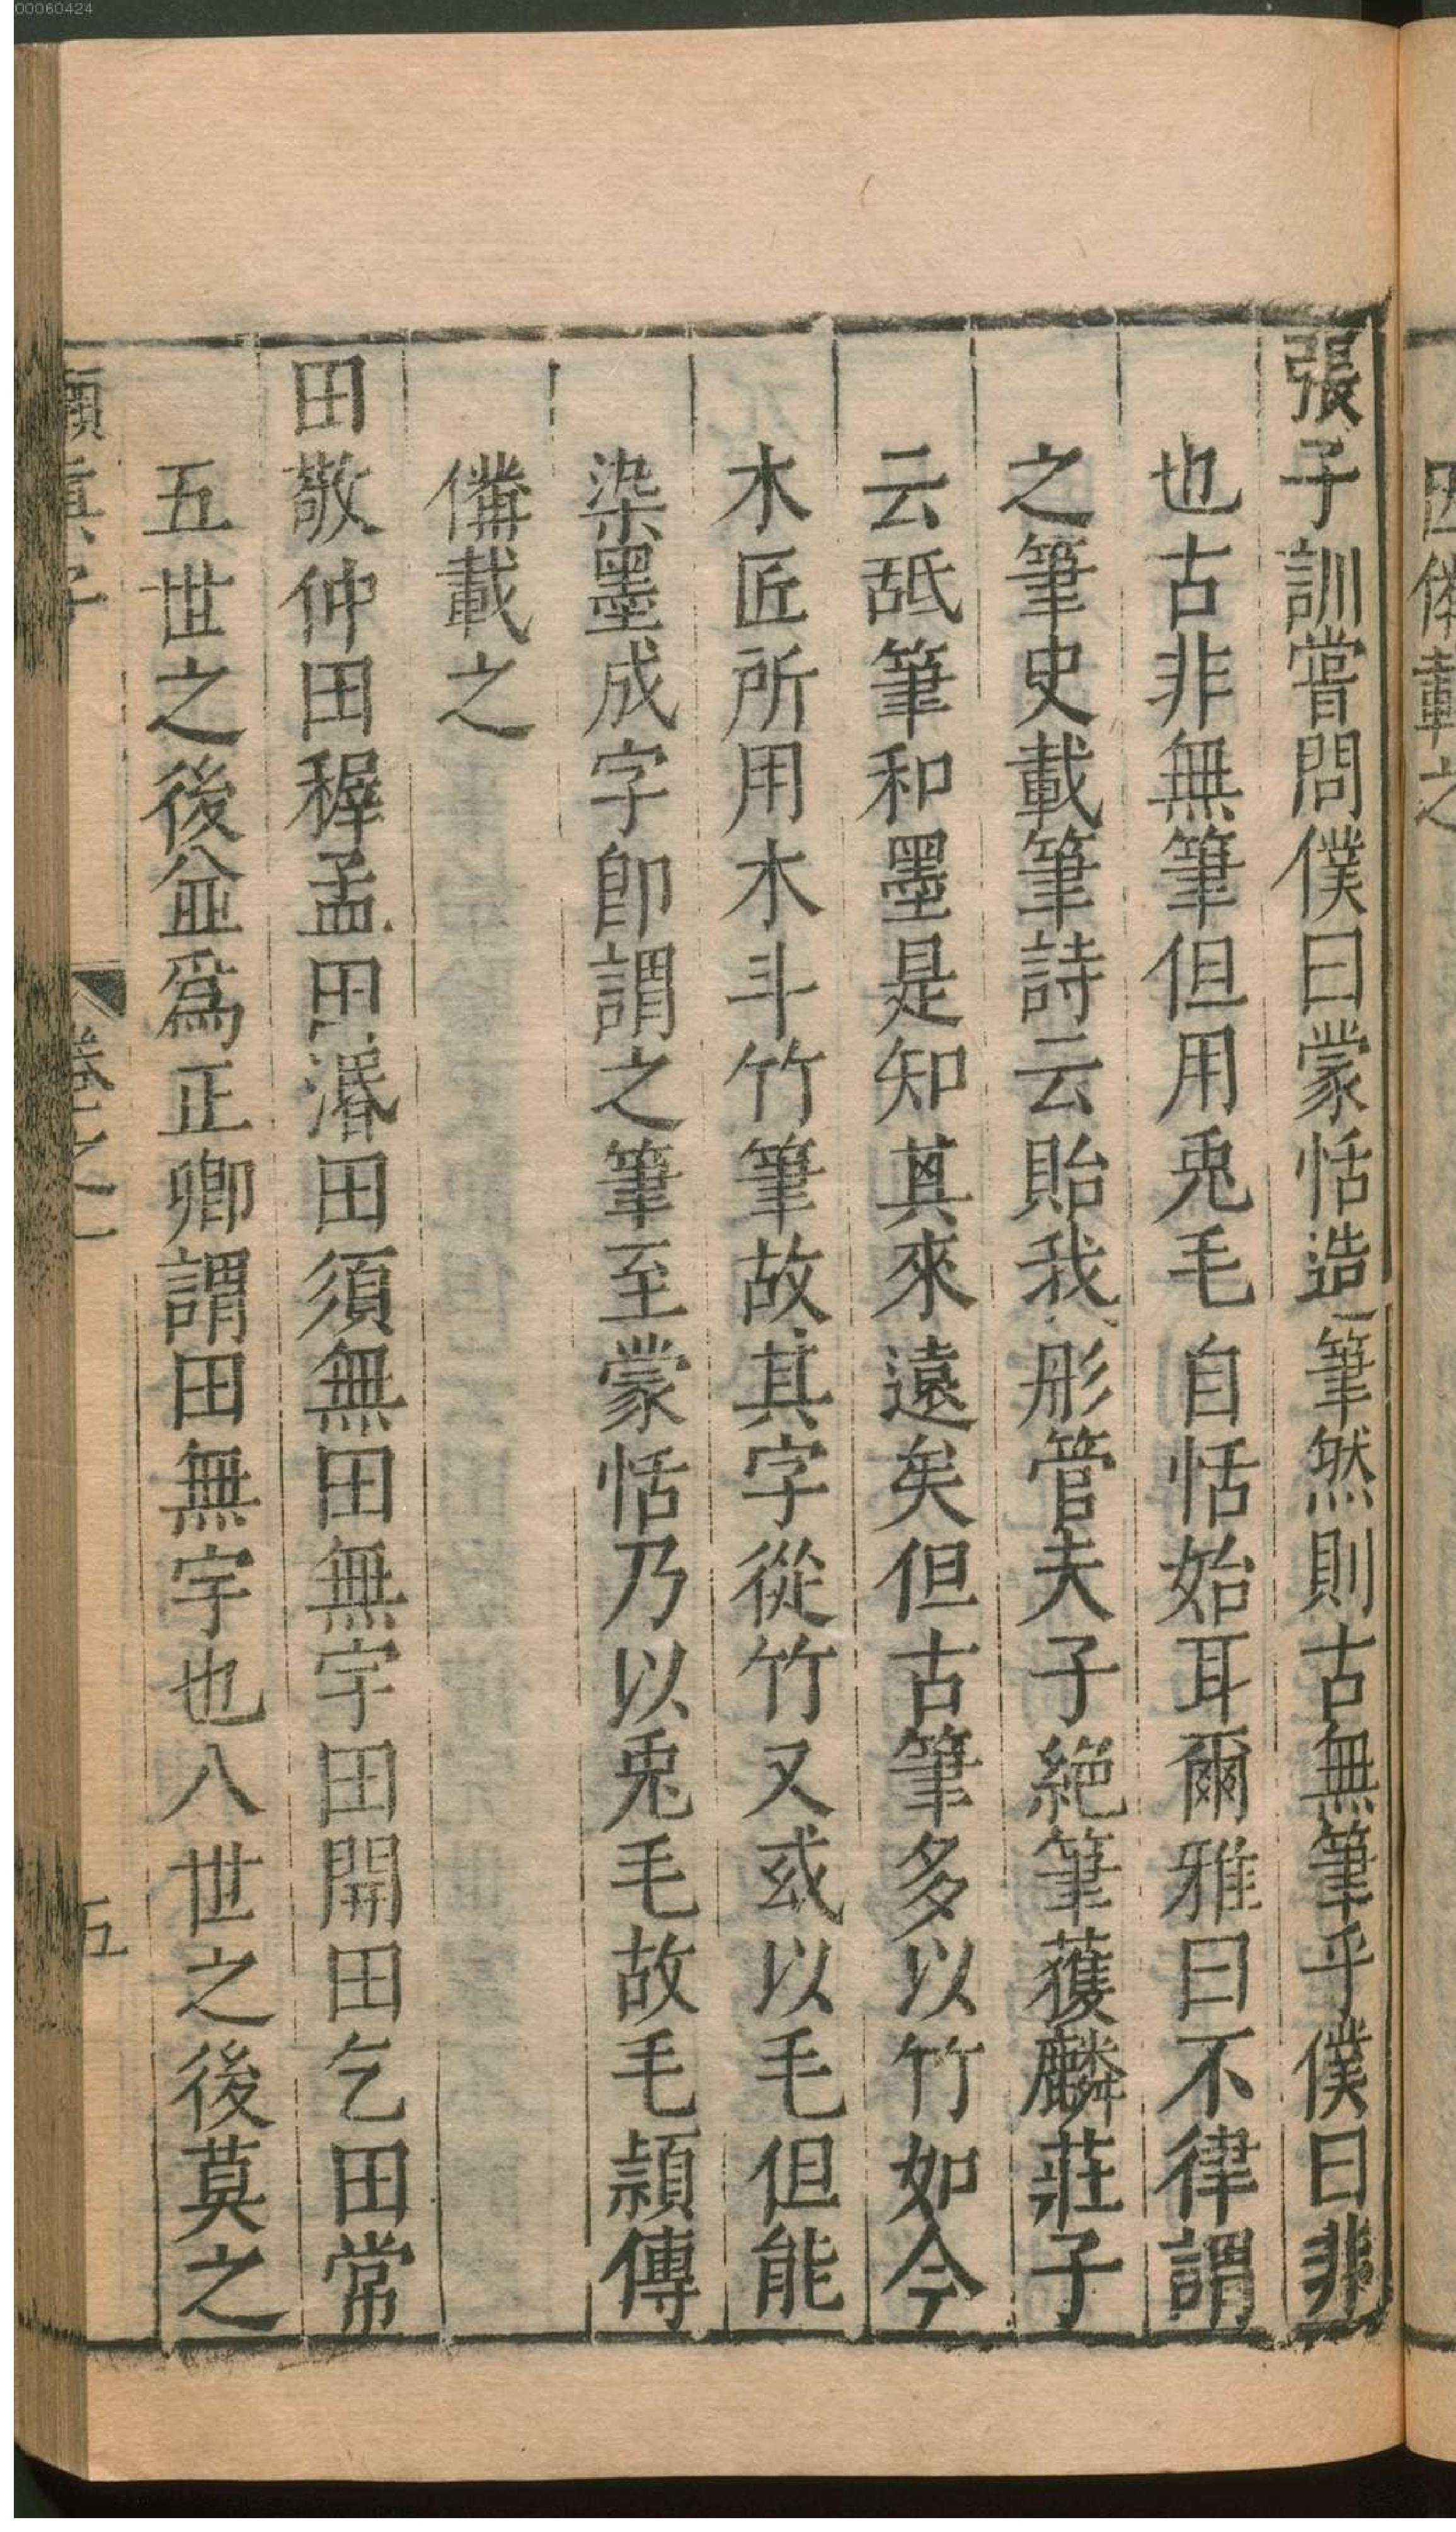 00060424
因倂載之
張子訓嘗問僕曰蒙恬造筆然則古無筆乎僕曰非
也古非無筆但用兎毛自恬始耳爾雅曰不律謂
之筆史載筆詩云貽我彤管夫子絶筆獲麟莊子
云舐筆和墨是知其來遠矣但古筆多以竹如今
木匠所用木斗竹筆故其字從竹又或以毛但能
染墨成字卽謂之筆至蒙恬乃以兎毛故毛頴傳
備載之
田敬仲田穉孟田湣田須無田無宇田開田乞田常
五世之後並爲正卿謂田無宇也八世之後莫之
嬾真子 卷之一 五